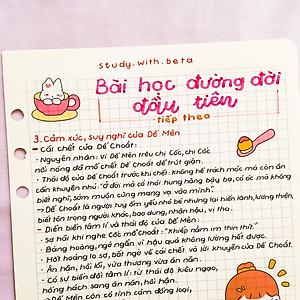 study.with.beta
Bài học đường đời
đầu tiên
-tiếp theo-
3. Cảm xúc, suy nghĩ của Dế Mèn
- Cái chết của Dế Choắt:
• Nguyên nhân: Vì Dế Mèn trêu chị Cốc, chị Cốc
nổi nóng đã mổ chết Dế Choắt để trút giận.
• Thái độ của Dế Choắt trước khi chết: Không hề trách móc mà còn ân
cần khuyên nhủ: "Ở đời mà có thói hung hăng bậy bạ, có óc mà không
biết nghĩ, sớm muộn cũng mang vạ vào mình".
→ Dế Choắt là người tuy ốm yếu nhỏ bé nhưng lại hiền lành, lương thiện,
biết tôn trọng người khác, bao dung, nhân hậu, vị tha.
- Diễn biến tâm lí và thái độ của Dế Mèn:
• Sợ hãi khi nghe Cốc mổ Choắt: "Khiếp nằm im thin thít."
• Bàng hoàng, ngơ ngẩn vì hậu quả không lường hết được.
• Hốt hoảng lo sợ, bất ngờ về cái chết và lời khuyên của Dế Choắt.
• Ân hận, hối lỗi, vừa thương vừa ăn năn.
- Có sự biến đổi tâm lí: từ thái độ kiêu ngạo,
hống hách sang ăn năn, hối hận.
→ Dế Mèn còn có tình cảm đồng loại,